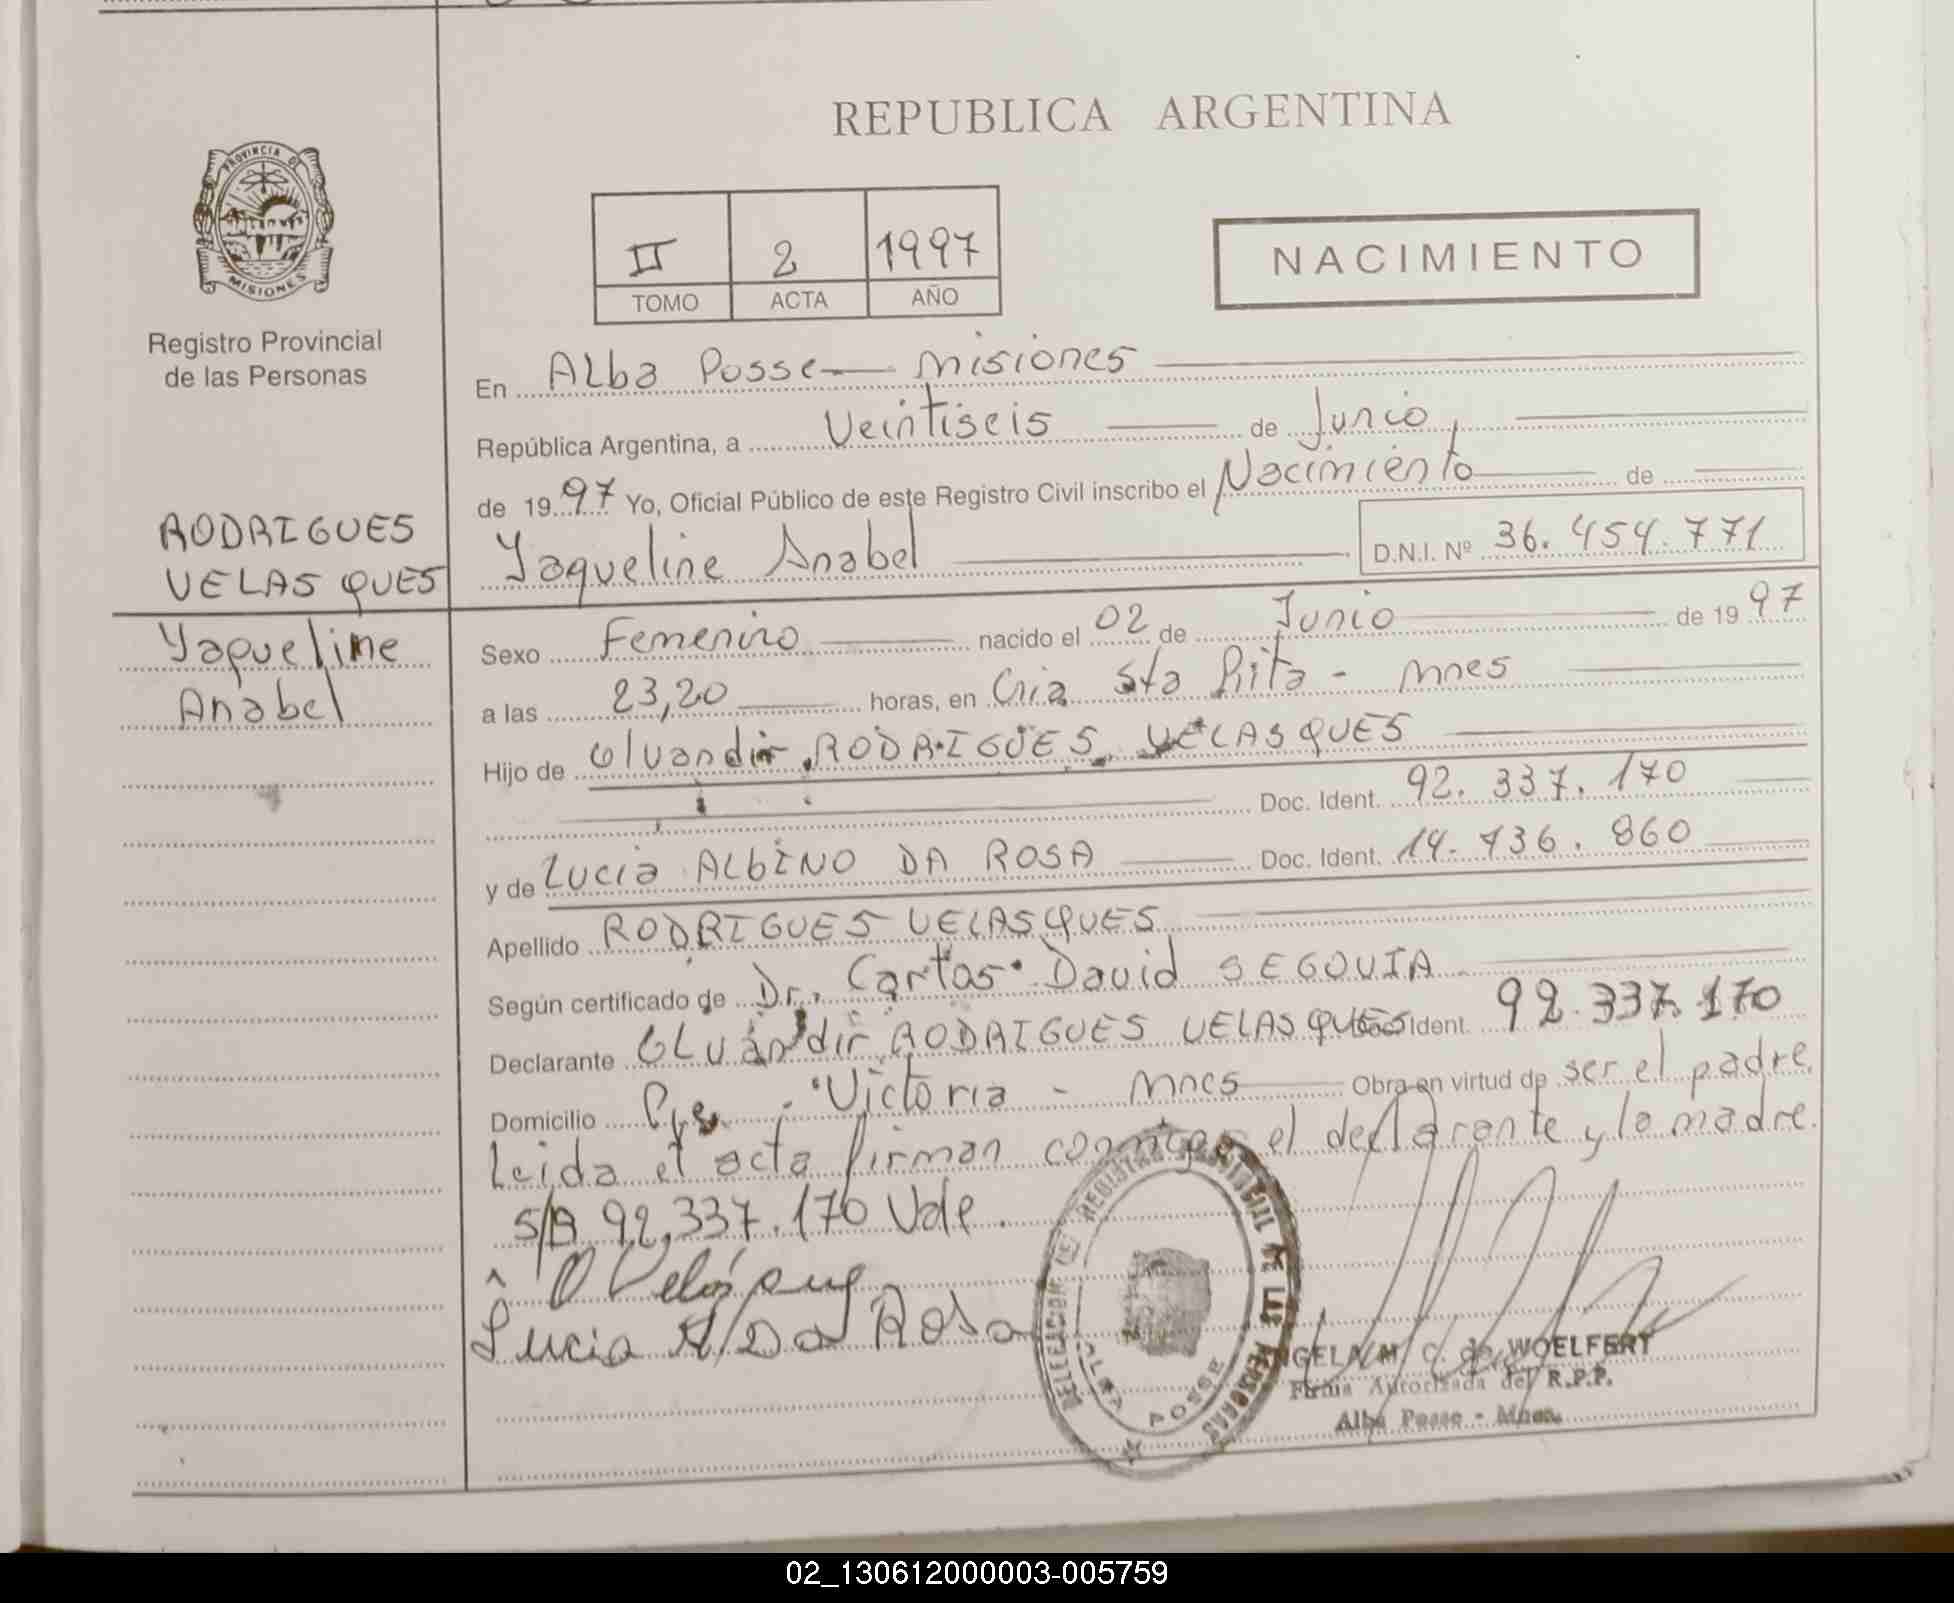 REPUBLICA ARGENTINA
PROVINCIA DE
MISIONES
Registro Provincial
de las Personas
II 2 1997
TOMO ACTA AÑO
NACIMIENTO
RODRIGUES
VELASQUES
Yaqueline
Anabel
En Alba Posse - Misiones
República Argentina, a Veintiseis de Junio
de 1997 Yo, Oficial Público de este Registro Civil inscribo el Nacimiento de
Yaqueline Anabel D.N.I. Nº 36.454.771
Sexo Femenino nacido el 02 de Junio de 1997
a las 23,20 horas, en Cria Sta Rita - Mnes
Hijo de Olvandir RODRIGUES VELASQUES
Doc. Ident. 92.337.170
y de Lucia ALBINO DA ROSA Doc. Ident. 14.736.860
Apellido RODRIGUES VELASQUES
Según certificado de Dr. Carlos David SEGOVIA
Declarante OLVandir RODRIGUES VELASQUES Doc Ident. 92.337.170
Domicilio Victoria - Mnes Obra en virtud de ser el padre
Leida el acta firman conmigo el declarante y la madre.
S/B 92,337.170 Vale.
O Velásque
Lucia A/Da Rosa
DELEGACION DE REGISTRO PROVINCIAL DE LAS PERSONAS
ALBA POSSE
ANGELA M. C. de WOELFERT
Firma Autorizada del R.P.P.
Alba Posse - Mnes.
02_130612000003-005759